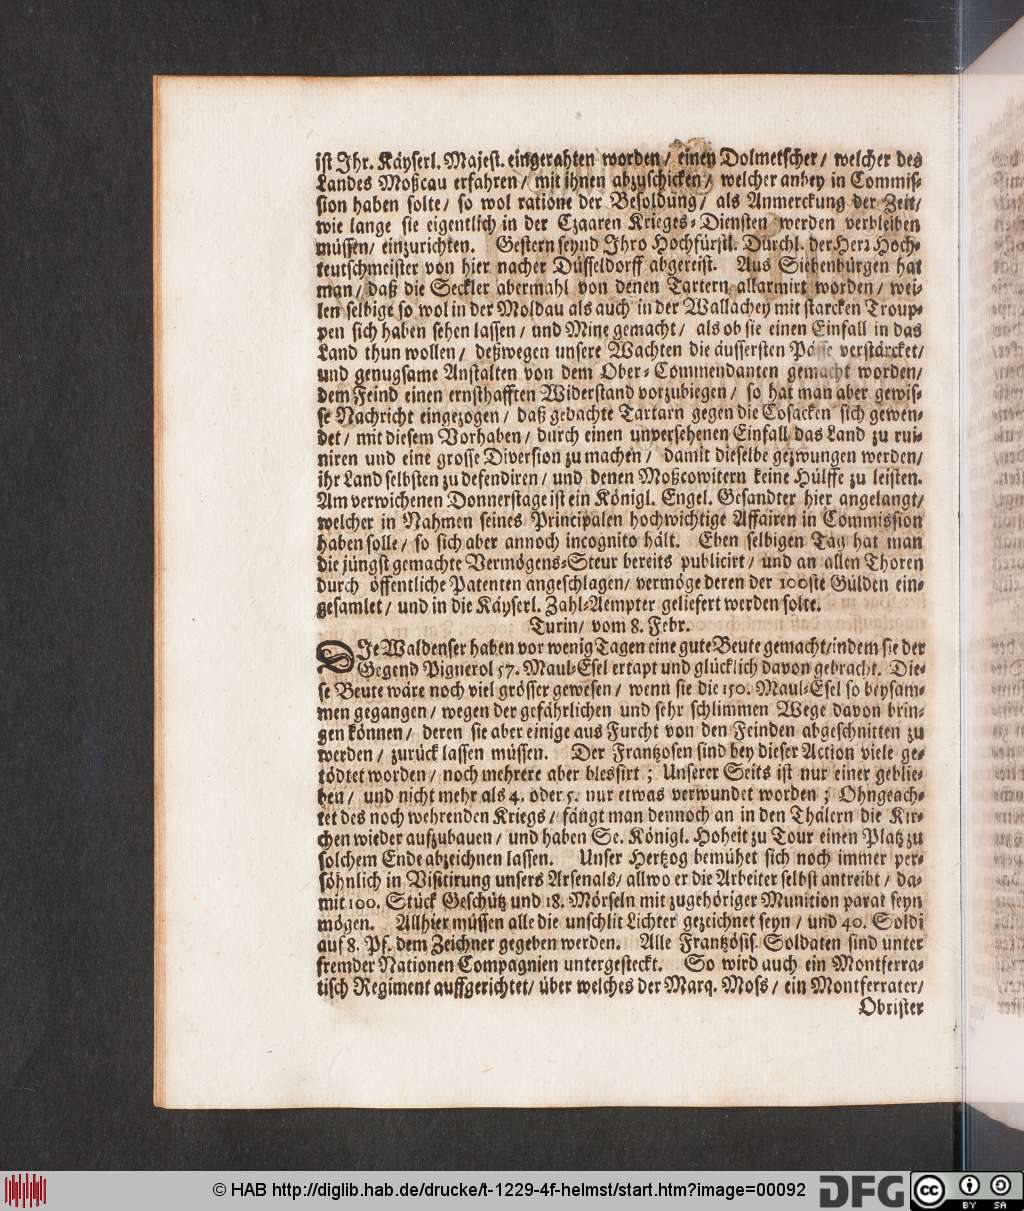 ist Ihr. Käyserl. Majest. eingerahten worden / einen Dolmetscher / welcher des
Landes Moßcau erfahren / mit ihnen abzuschicken / welcher anbey in Commis-
sion haben solte / so wol ratione der Besoldung / als Anmerckung der Zeit /
wie lange sie eigentlich in der Czaaren Krieges-Diensten werden verbleiben
müssen / einzurichten. Gestern seynd Ihro Hochfürstl. Durchl. der Herr Hoch-
teutschmeister von hier nacher Düsseldorff abgereist. Aus Siebenbürgen hat
man / daß die Seckler abermahl von denen Tartern allarmirt worden / wei-
len selbige so wol in der Moldau als auch in der Wallachey mit starcken Troup-
pen sich haben sehen lassen / und Mine gemacht / als ob sie einen Einfall in das
Land thun wollen / deßwegen unsere Wachten die äussersten Pässe verstärcket /
und genugsame Anstalten von dem Ober-Commendanten gemacht worden /
dem Feind einen ernsthafften Widerstand vorzubiegen / so hat man aber gewis-
se Nachricht eingezogen / daß gedachte Tartarn gegen die Cosacken sich gewen-
det / mit diesem Vorhaben / durch einen unversehenen Einfall das Land zu rui-
niren und eine grosse Diversion zu machen / damit dieselbe gezwungen werden /
ihr Land selbsten zu defendiren / und denen Moßcowitern keine Hülffe zu leisten.
Am verwichenen Donnerstage ist ein Königl. Engel. Gesandter hier angelangt /
welcher in Nahmen seines Principalen hochwichtige Affairen in Commission
haben solle / so sich aber annoch incognito hält. Eben selbigen Tag hat man
die jüngst gemachte Vermögens-Steur bereits publicirt / und an allen Thoren
durch öffentliche Patenten angeschlagen / vermöge deren der 100ste Gülden ein-
gesamlet / und in die Käyserl. Zahl-Aempter geliefert werden solte.
Turin / vom 8. Febr.
DIe Waldenser haben vor wenig Tagen eine gute Beute gemacht / indem sie der
Gegend Pignerol 57. Maul-Esel ertapt und glücklich davon gebracht. Die-
se Beute wäre noch viel grösser gewesen / wenn sie die 150. Maul-Esel so beysam-
men gegangen / wegen der gefährlichen und sehr schlimmen Wege davon brin-
gen können / deren sie aber einige aus Furcht von den Feinden abgeschnitten zu
werden / zurück lassen müssen. Der Frantzosen sind bey dieser Action viele ge-
tödtet worden / noch mehrere aber blessirt ; Unserer Seits ist nur einer geblie-
ben / und nicht mehr als 4. oder 5. nur etwas verwundet worden ; Ohngeach-
tet des noch wehrenden Kriegs / fängt man dennoch an in den Thälern die Kir-
chen wieder aufzubauen / und haben Se. Königl. Hoheit zu Tour einen Platz zu
solchem Ende abzeichnen lassen. Unser Hertzog bemühet sich noch immer per-
söhnlich in Visitirung unsers Arsenals / allwo er die Arbeiter selbst antreibt / da-
mit 100. Stück Geschütz und 18. Mörseln mit zugehöriger Munition parat seyn
mögen. Allhier müssen alle die unschlit Lichter gezeichnet seyn / und 40. Soldi
auf 8. Pf. dem Zeichner gegeben werden. Alle Frantzösis. Soldaten sind unter
fremder Nationen Compagnien untergesteckt. So wird auch ein Montferra-
tisch Regiment auffgerichtet / über welches der Marq. Moss / ein Montferrater /
Obrister
© HAB http://diglib.hab.de/drucke/t-1229-4f-helmst/start.htm?image=00092
DFG
cc BY SA